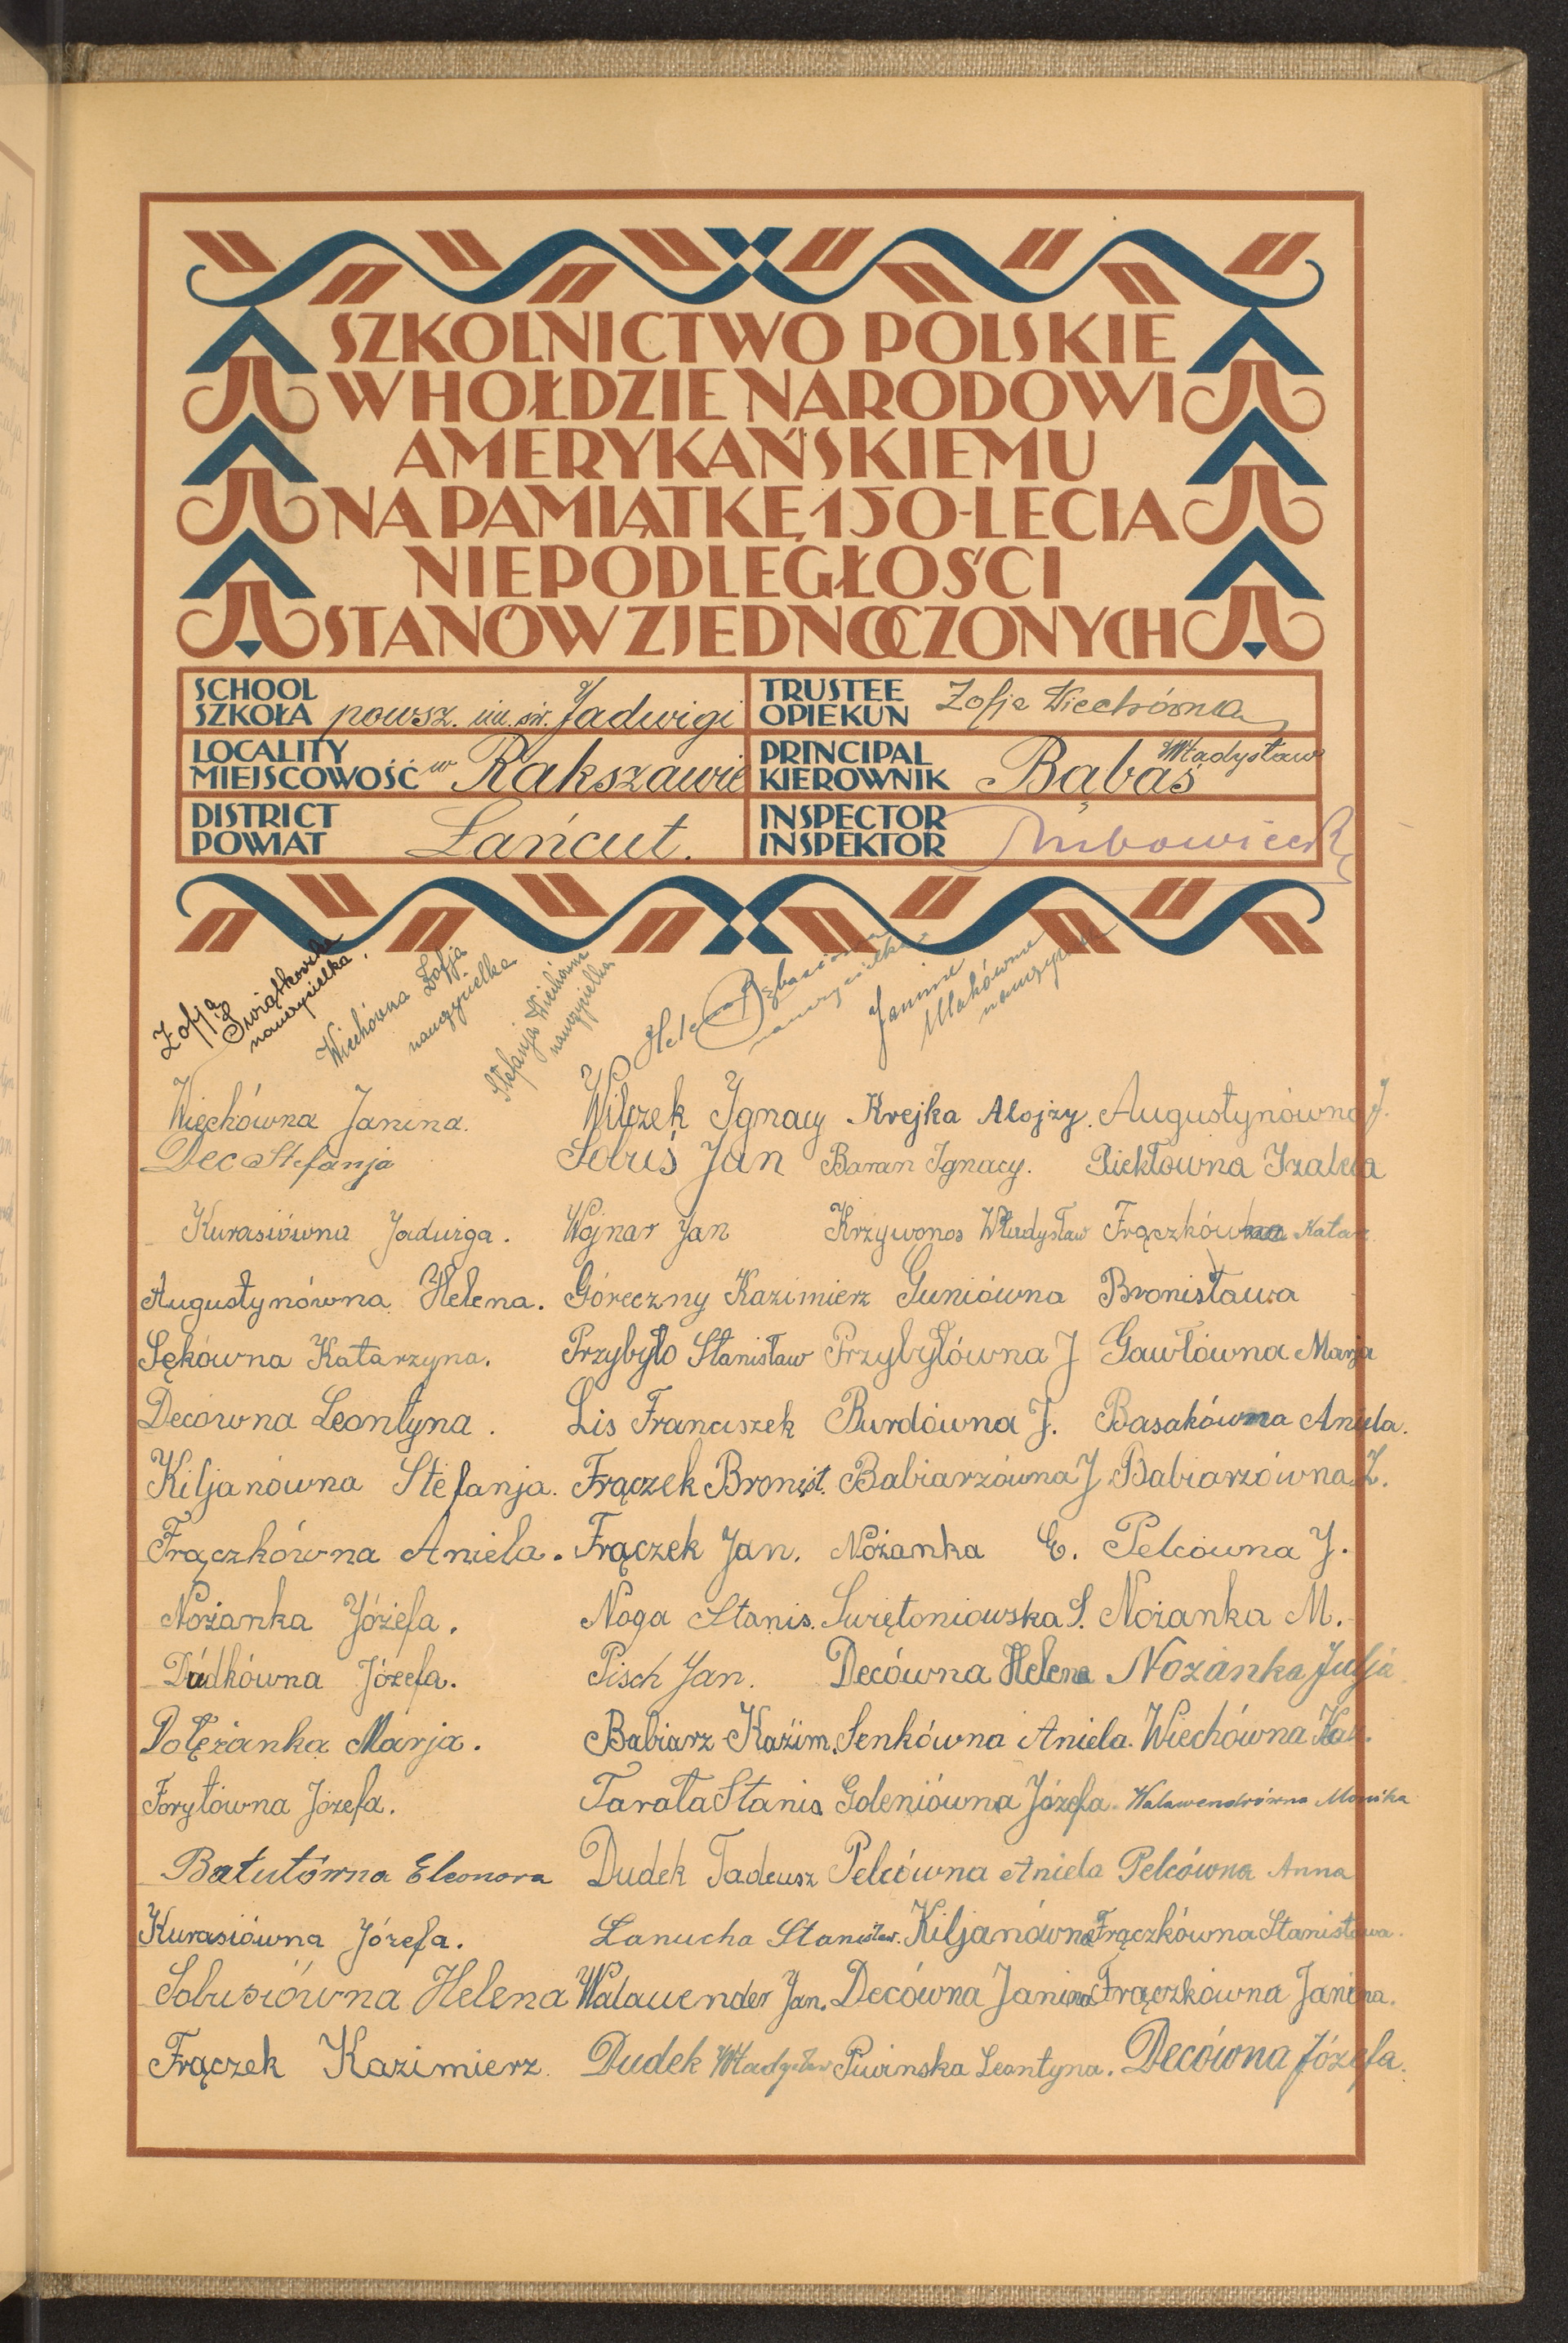 SZKOLNICTWO POLSKIE
W HOŁDZIE NARODOWI
AMERYKAŃSKIEMU
NA PAMIĄTKĘ 150-LECIA
NIEPODLEGŁOŚCI
STANÓW ZJEDNOCZONYCH
SCHOOL
SZKOŁA powsz. im. św. Jadwigi
TRUSTEE
OPIEKUN Zofja Wiechówna
LOCALITY
MIEJSCOWOŚĆ w Rakszawie
PRINCIPAL
KIEROWNIK Bąbaś Władysław
DISTRICT
POWIAT Łańcut.
INSPECTOR
INSPEKTOR
Zofja Świątkowska nauczycielka.
Wiechówna Zofja nauczycielka
Stefanja Wiechówna nauczycielka
Helena nauczycielka
Janina Makówna nauczycielka
Więchówna Janina. Wilczek Ignacy Krejka Alojzy. Augustynówna J.
Dec Stefanja Sobuś Jan Baran Ignacy. Piekłówna Izabela
Kurasiówna Jadwiga. Wojnar Jan Krzywonos Władysław Frączkówna Katarz
Augustynówna Helena. Góreczny Kazimierz Guniówna Bronisława
Sękówna Katarzyna. Przybyło Stanisław Przybyłówna J Gawłówna Marja
Decówna Leontyna. Lis Franciszek Burdówna J. Basakówna Aniela.
Kiljanówna Stefanja. Frączek Bronisł. Babiarzówna J Babiarzówna Z.
Frączkówna Aniela. Frączek Jan. Nożanka E. Pelcówna J.
Nożanka Józefa. Noga Stanis. Świętoniowska S. Nożanka M.
Dudkówna Józefa. Pisch Jan. Decówna Helena Nożanka Julja
Potężanka Marja. Babiarz Kazim. Senkówna Aniela. Wiechówna Kat.
Forytówna Józefa. Tarała Stanis Goleniówna Józefa. Walawendrówna Monika
Batutówna Eleonora Dudek Tadeusz Pelcówna Aniela Pelcówna Anna
Kurasiówna Józefa. Lanucha Stanisław. Kiljanówna Frączkówna Stanisława.
Sobusiówna Helena Walawender Jan. Decówna Janina Frączkówna Janina.
Frączek Kazimierz. Dudek Władysław Piwinska Leontyna. Decówna Józefa.